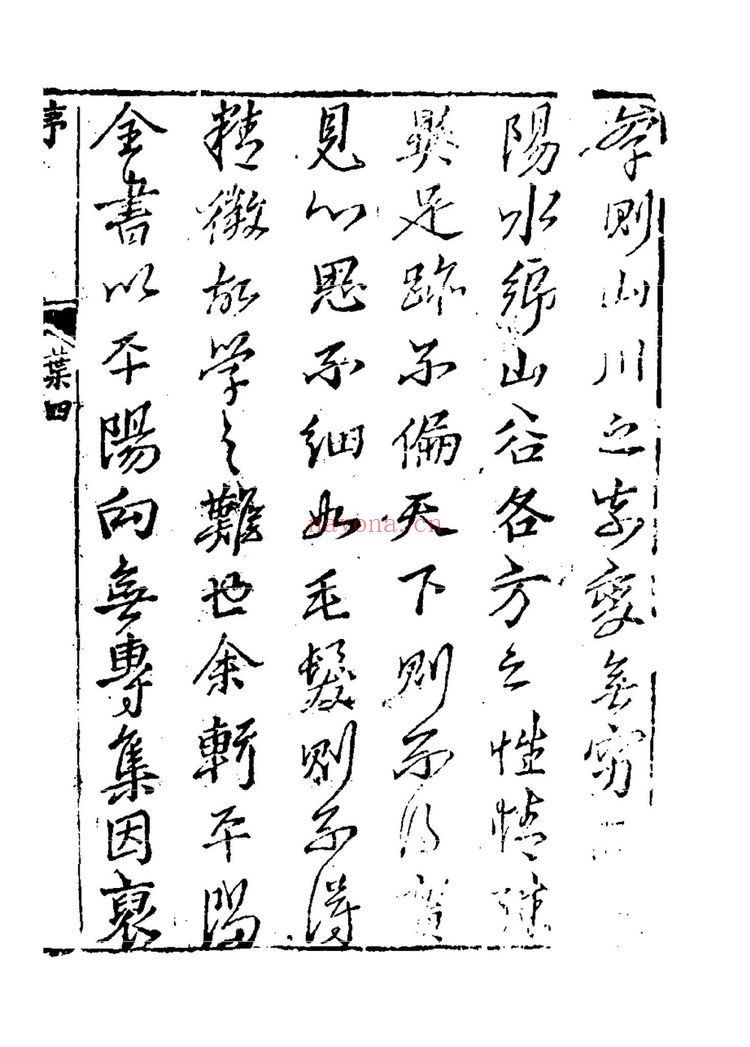 則山川之變無窮
陽水山谷各方之性情殊
異足跡不偏天下則不得實
見心思不細如毛髮則不得
精微故學之難也余輯平陽
全書以平陽向無專集因裒
序 葉四
nayona.cn